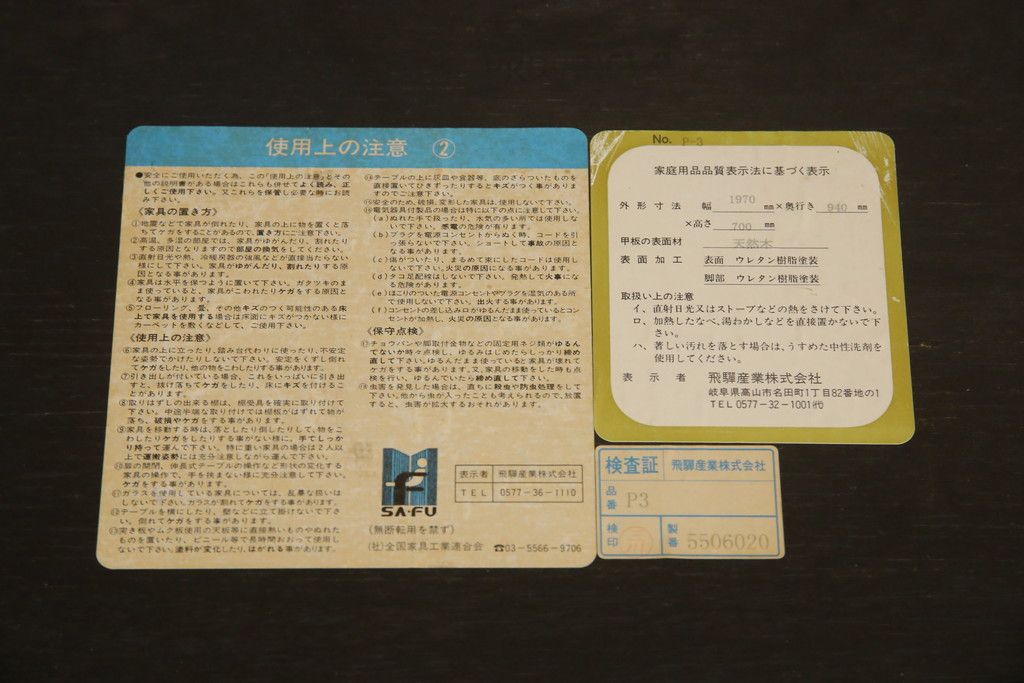 使用上の注意 ②
●安全にご使用いただく為、この「使用上の注意」とその
他の説明書がある場合はこれらも併せてよく読み、正
しくご使用下さい。又これらを保管し必要な時にお読
み下さい。
《家具の置き方》
①地震などで家具が倒れたり、家具の上に物を置くと落
ちてケガをすることがあるので、置き方にご注意下さい。
②高温、多湿の部屋では、家具がゆがんだり、割れたり
する原因となりますので部屋の換気をしてください。
③直射日光や熱、冷暖房器の強風などが直接当たらない
様にして下さい。家具がゆがんだり、割れたりする原
因となる事があります。
④家具は水平を保つように置いて下さい。ガタツキのま
ま使っていると、家具がこわれたりケガをする原因と
なる事があります。
⑤フローリング、畳、その他キズのつく可能性のある床
上で家具を使用する場合は床面にキズがつかない様に
カーペットを敷くなどして、ご使用下さい。
《使用上の注意》
⑥家具の上に立ったり、踏み台代りに使ったり、不安定
な姿勢でかけたりしないで下さい。安定をくずし倒れ
てケガをしたり、他の物をこわしたりする事があります。
⑦引き出しが付いている場合、これをいっぱいに引き出
すと、抜け落ちてケガをしたり、床にキズを付けるこ
とがあります。
⑧取りはずしの出来る棚は、棚受具を確実に取り付けて
下さい。中途半端な取り付けでは棚板がはずれて物が
落ち、破損やケガをする事があります。
⑨家具を移動する時は、落としたり倒したりして、物をこ
わしたりケガをしたりする事がない様に、手でしっか
り持って運んで下さい。特に重い家具の場合は2人以
上で運搬姿勢には充分注意しながら運んで下さい。
⑩扉の開閉、伸長式テーブルの操作など形状の変化する
家具の操作で、手を挟まない様に充分注意して下さい。
ケガをする事があります。
⑪ガラスを使用している家具については、乱暴な扱いは
しないで下さい。ガラスが割れてケガをする事があります。
⑫テーブルを横にしたり、壁などに立て掛けないで下さ
い。倒れてケガをする事があります。
⑬突き板やムク板使用の天板等に直接熱いものやぬれた
ものを置いたり、ビニール等で長時間おおって使用し
ないで下さい。塗料が変化したり、はがれる事があります。
⑭テーブルの上に灰皿や食器等、底のざらついたものを
直接置いてひきずったりするとキズがつく事があります
ますのでご注意下さい。
⑮安全のため、破損、変形した家具は、使用しないで下さい。
⑯電気器具付製品の場合は特に以下の点に注意して下さい。
(a)ぬれた手で扱ったり、水気の多い所では使用しな
いで下さい。感電の危険が有ります。
(b)プラグを電源コンセントからぬく時、コードを引
っ張らないで下さい。ショートして事故の原因と
なる事があります。
(c)傷がついたり、まるめて束にしたコードは使用し
ないで下さい。火災の原因になる事があります。
(d)タコ足配線はしないで下さい。発熱して火事にな
る危険があります。
(e)ほこりのついた電源コンセントやプラグを湿気のある所
で使用しないで下さい。出火する事があります。
(f)コンセントの差し込み口がゆるんだまま使っているとコン
セントが加熱し、火災の原因となる事があります。
《保守点検》
⑰チョウバンや脚取付金物などの固定用ネジ類がゆるん
でないか時々点検し、ゆるみはじめたらしっかり締め
直して下さい。ゆるんだまま使っていると家具が壊れて
ケガをする事があります。又、家具の移動をした時も点
検を行い、ゆるんでいたら締め直して下さい。
⑱虫害を発見した場合は、直ちに殺虫や防虫処理をして
下さい。他から虫が入ったことも考えられるので、放置
すると、虫害が拡大するおそれがあります。
SA-FU
表示者 飛騨産業株式会社
TEL 0577-36-1110
(無断転用を禁ず)
(社)全国家具工業連合会 ☎03-5566-9706
No. P-3
家庭用品品質表示法に基づく表示
外形寸法 幅 1970 mm×奥行き 940 mm
×高さ 700 mm
甲板の表面材 天然木
表面加工 表面 ウレタン樹脂塗装
脚部 ウレタン樹脂塗装
取扱い上の注意
イ、直射日光又はストーブなどの熱をさけて下さい。
ロ、加熱したなべ、湯わかしなどを直接置かないで下
さい。
ハ、著しい汚れを落とす場合は、うすめた中性洗剤を
使用してください。
表示者 飛騨産業株式会社
岐阜県高山市名田町1丁目82番地の1
TEL 0577-32-1001㈹
検査証 飛騨産業株式会社
品番 P3
検印 製番 5506020